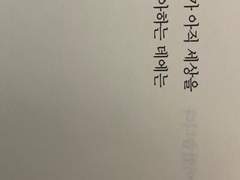 가 아직 세상을
아하는 데에는